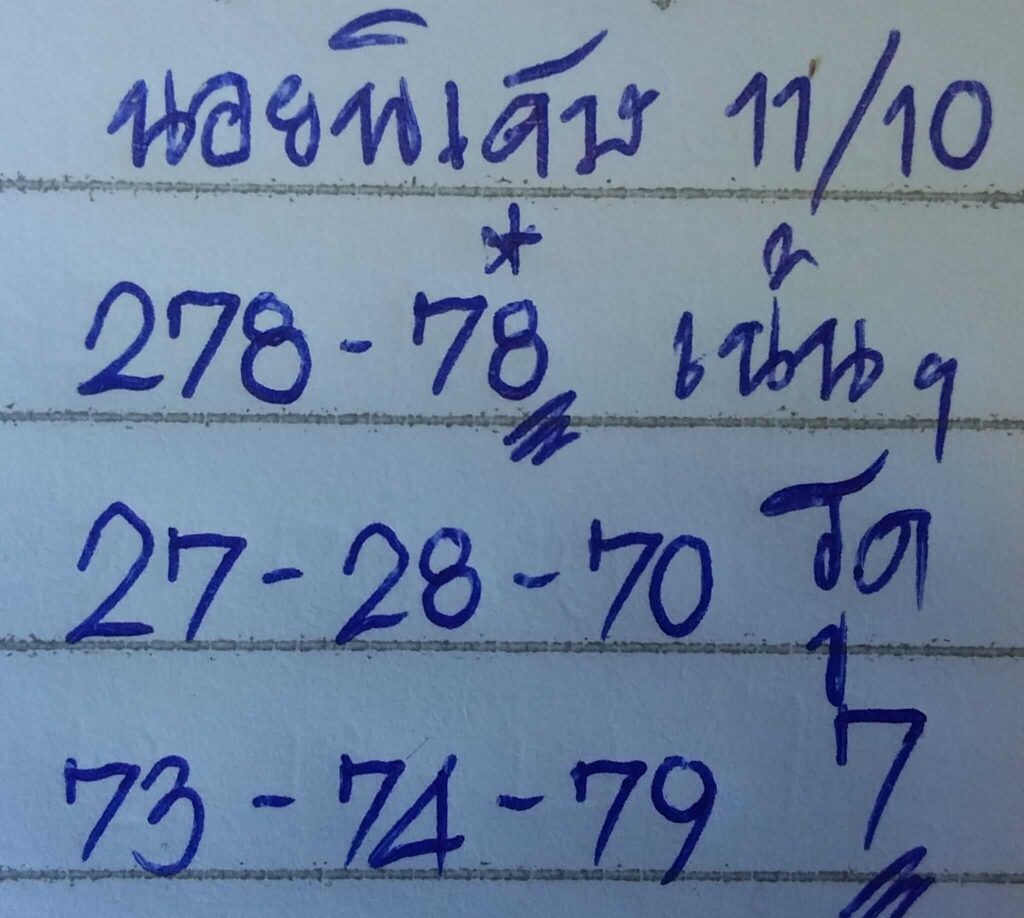 นอยพิเศษ 11/10
278 - 78 * เน้นๆ
27 - 28 - 70 รูด
73 - 74 - 79 7